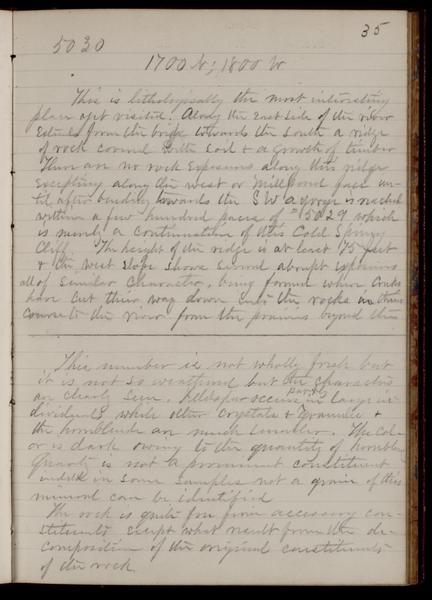 35
5030
1700 N; 1800 W
This is lithologically the most interesting
place yet visited. Along the East Side of the river
Extends from the bridge towards the South a ridge
of rock covered with Soil & a growth of timber
There are no rock Exposures along this ridge
Excepting along the west or mill pond face un-
til after bending towards the SW a gorge is reached
within a few hundred paces of 5029 which
is merely a continuation of this Cold Spring
Cliff. The height of the ridge is at least 75 feet
& the West Slope shows several abrupt exposures
all of Similar Character, being formed where Creeks
have Cut their way down into the rocks in their
course to the river from the prairies beyond this
This number is not wholly fresh but
it is not so weathered but the characters
are clearly Seen. Feldspar occurs partly in large in-
dividuals while other Crystals & Granules &
the hornblende are much smaller. The Col-
or is dark owing to the quantity of hornblende
Quartz is not a prominent constituent
indeed in some samples not a grain of this
mineral can be identified
The rock is quite free from accessory con-
stituents except what result from the de-
composition of the original constituents
of the rock